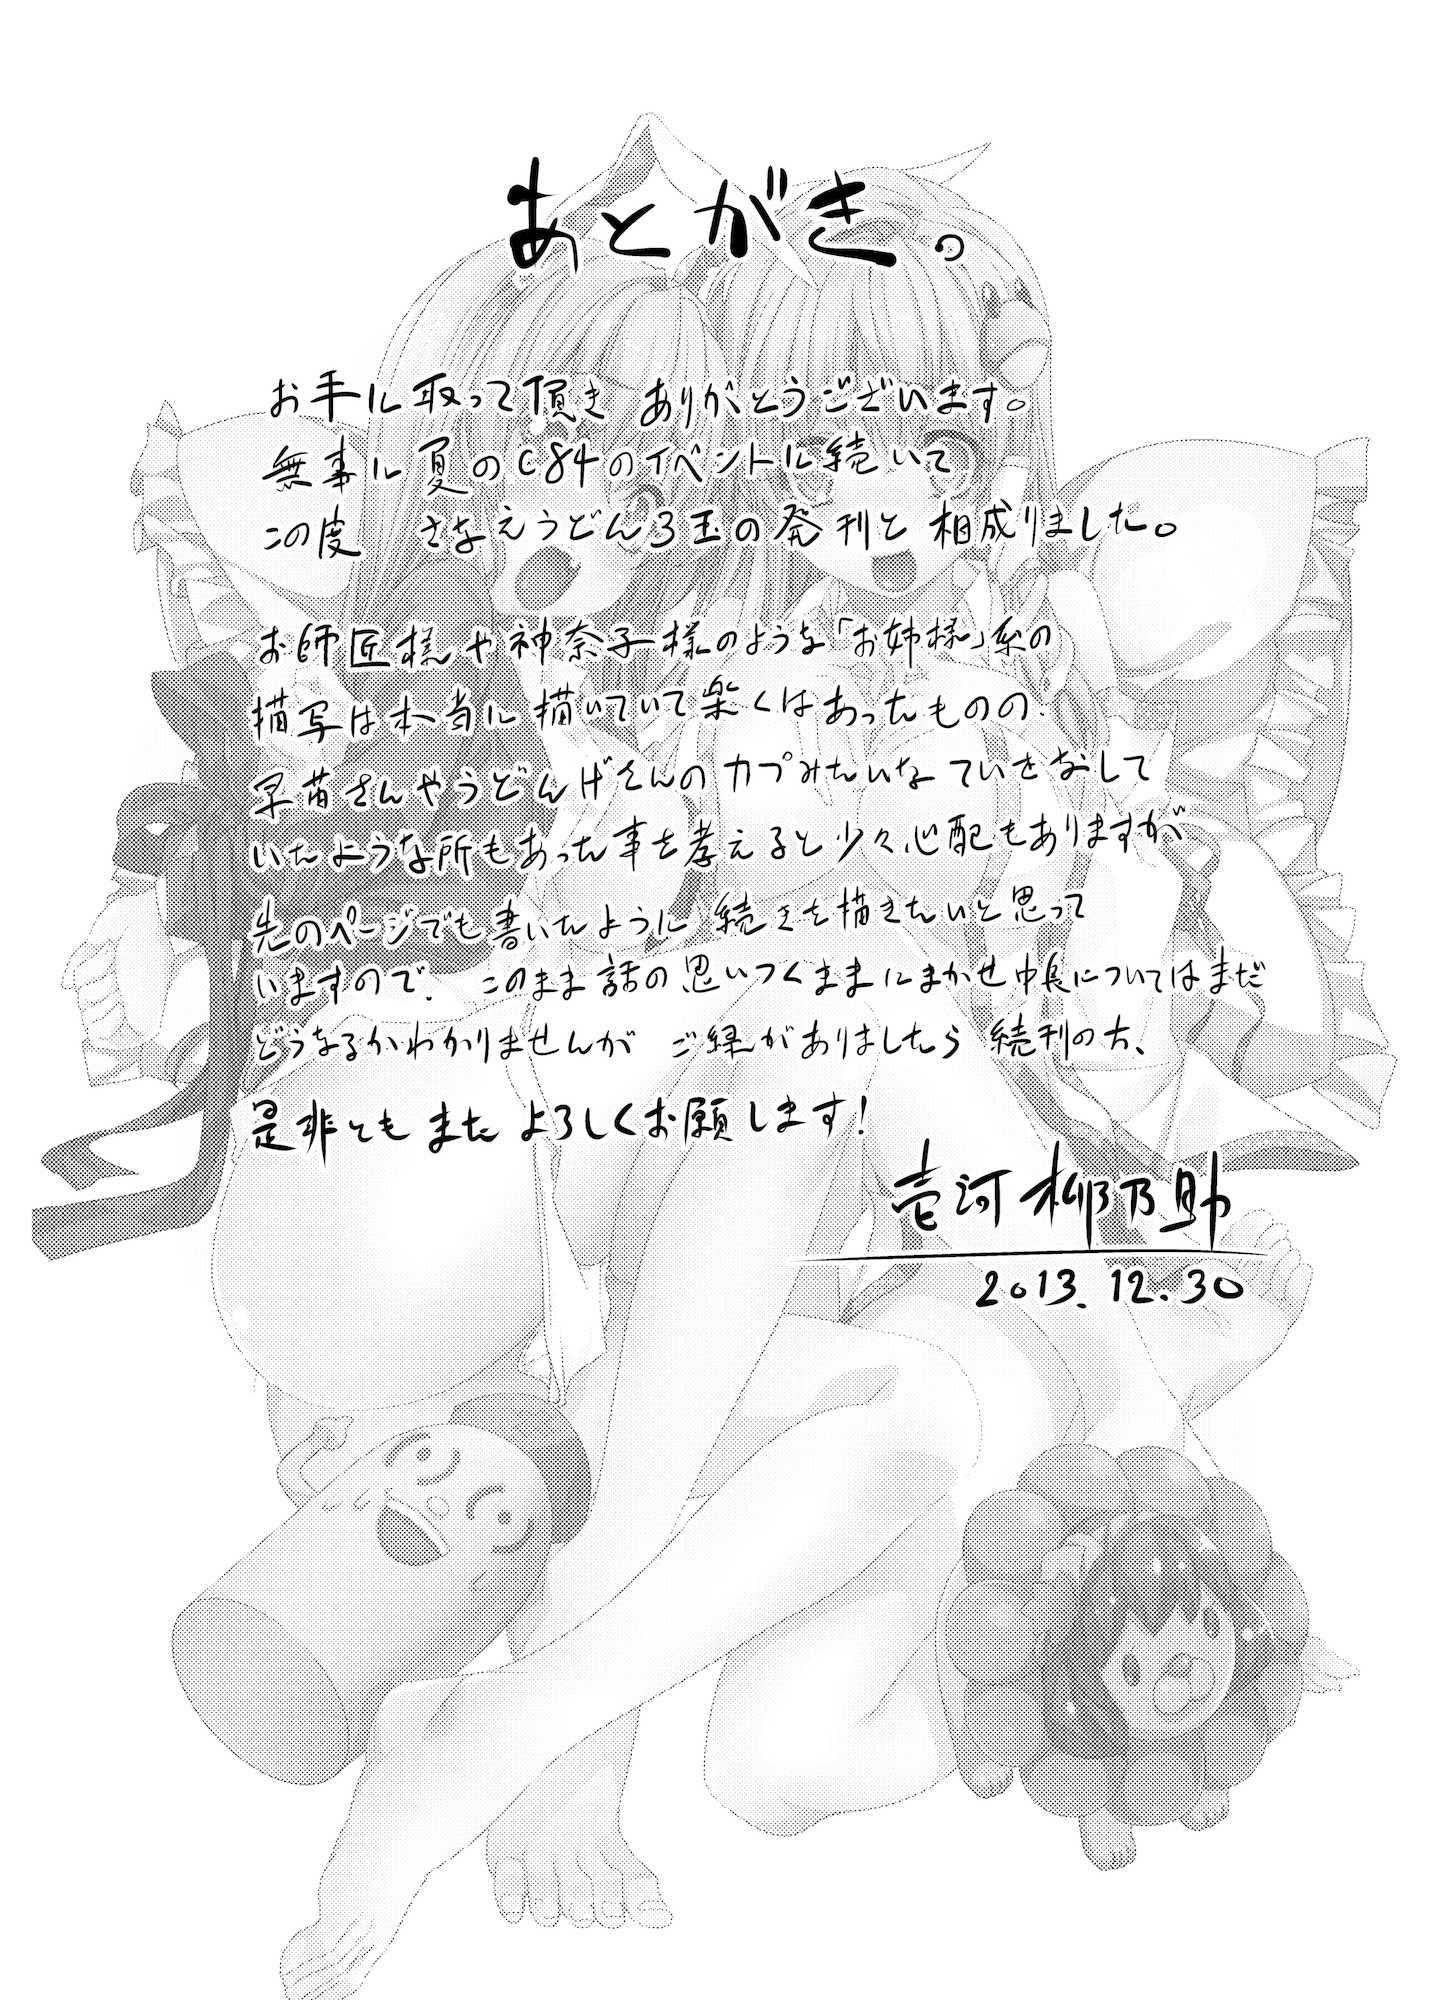 あとがき。
お手に取って頂き ありがとうございます。
無事に夏のC84のイベントに続いて
この度 さなえうどん3玉の発刊と相成りました。
お師匠様や神奈子様のような「お姉様」系の
描写は本当に描いていて楽くはあったものの、
早苗さんやうどんげさんのカプみたいなていをなして
いたような所もあった事を考えると少々心配もありますが
先のページでも書いたように続きを描きたいと思って
いますので、このまま話の思いつくままにまかせ中長についてはまだ
どうなるかわかりませんが ご縁がありましたら続刊の方、
是非ともまたよろしくお願します!
壱河柳乃助
2013.12.30